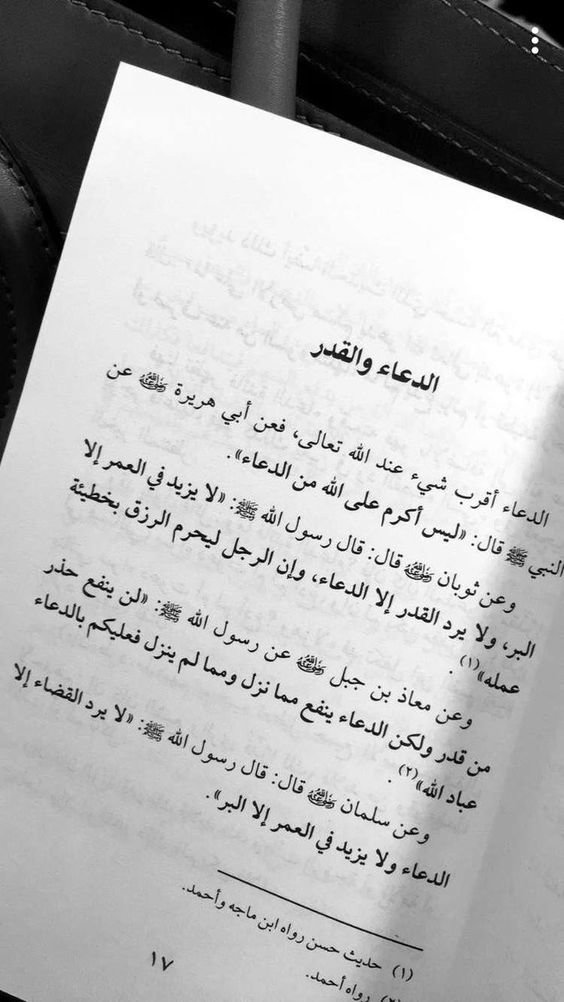 الدعاء والقدر
الدعاء أقرب شيء عند الله تعالى، فعن أبي هريرة رضي الله عنه عن
النبي ﷺ قال: «ليس أكرم على الله من الدعاء».
وعن ثوبان رضي الله عنه قال: قال رسول الله ﷺ: «لا يزيد في العمر إلا
البر، ولا يرد القدر إلا الدعاء، وإن الرجل ليحرم الرزق بخطيئة
عمله»(١).
وعن معاذ بن جبل رضي الله عنه عن رسول الله ﷺ: «لن ينفع حذر
من قدر ولكن الدعاء ينفع مما نزل ومما لم ينزل فعليكم بالدعاء
عباد الله»(٢).
وعن سلمان رضي الله عنه قال: قال رسول الله ﷺ: «لا يرد القضاء إلا
الدعاء ولا يزيد في العمر إلا البر».
(١) حديث حسن رواه ابن ماجه وأحمد.
(٢) رواه أحمد.
١٧